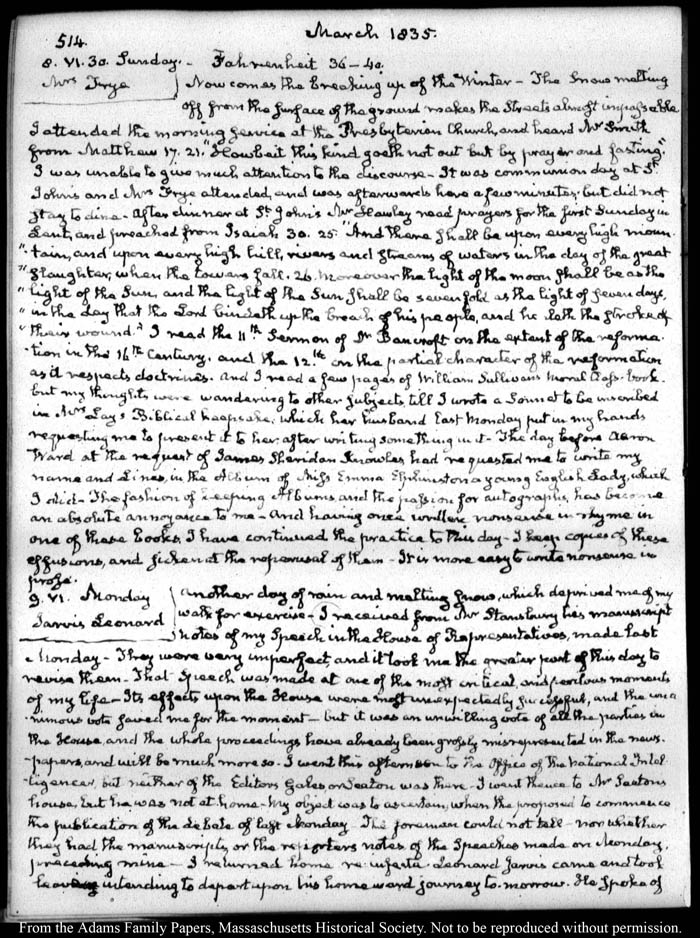 514.
March 1835.
8. VI. 30. Sunday. - Fahrenheit 36-40.
Mrs Frye
Now comes the breaking up of the Winter - The Snow melting
off from the surface of the ground makes the Streets almost impassable
I attended the morning service at the Presbyterian Church, and heard Mr Smith
from Matthew 17. 21. "Howbeit this kind goeth not out but by prayer and fasting."
I was unable to give much attention to the discourse - It was communion day at St
John's and Mrs Frye attended, and was afterwards here a few minutes; but did not
stay to dine - After dinner at St John's Mr Hawley read prayers for the first Sunday in
Lent, and preached from Isaiah 30. 25. "And there shall be upon every high moun-
"tain, and upon every high hill, rivers and streams of waters in the day of the great
"slaughter, when the towers fall. 26. Moreover the light of the moon shall be as the
"light of the Sun, and the light of the Sun shall be sevenfold as the light of seven days,
"in the day that the Lord bindeth up the breach of his people, and healeth the stroke of
"their wound." I read the 11th Sermon of Dr Bancroft on the extent of the reforma-
tion in the 16th Century. and the 12th on the partial character of the reformation
as it respects doctrines. And I read a few pages of William Sullivan's Moral Class-book.
but my thoughts were wandering to other subjects, till I wrote a Sonnet to be inscribed
in Mrs Lay's Biblical keepsake, which her husband last Monday put in my hands
requesting me to present it to her after writing something in it - The day before Aaron
Ward at the request of James Sheridan Knowles had requested me to write my
name and Lines, in the Album of Miss Emma Elphinston a young English Lady, which
I did - The fashion of keeping Albums and the passion for autographs, has become
an absolute annoyance to me - And having once written nonsense in rhyme in
one of these books, I have continued the practice to this day - I keep copies of these
effusions, and sicken at the reperusal of them - It is more easy to write nonsense in
prose.
9. VI. Monday
Jarvis Leonard
Another day of rain and melting snow, which deprived me of my
walk for exercise - I received from Mr Stansbury his manuscript
notes of my Speech in the House of Representatives, made last
Monday - They were very imperfect, and it took me the greater part of this day to
revise them - That Speech was made at one of the most critical, and perilous moments
of my life - Its effects upon the House were most unexpectedly successful, and the una-
nimous vote saved me for the moment - but it was an unwilling vote of all the parties in
the House, and the whole proceedings have already been grossly misrepresented in the news-
papers, and will be much more so. I went this afternoon to the Office of the National Intel-
ligencer, but neither of the Editors Gales or Seaton was there - I went thence to Mr Seaton's
house, but he was not at home - My object was to ascertain, when the proposed to commence
the publication of the debate of last Monday - The foreman could not tell - nor whether
they had the manuscripts, or the reporters notes of the Speeches made on Monday,
preceding mine - I returned home re infecta. Leonard Jarvis came and took
leave intending to depart upon his homeward journey to-morrow. He spoke of
From the Adams Family Papers, Massachusetts Historical Society. Not to be reproduced without permission.